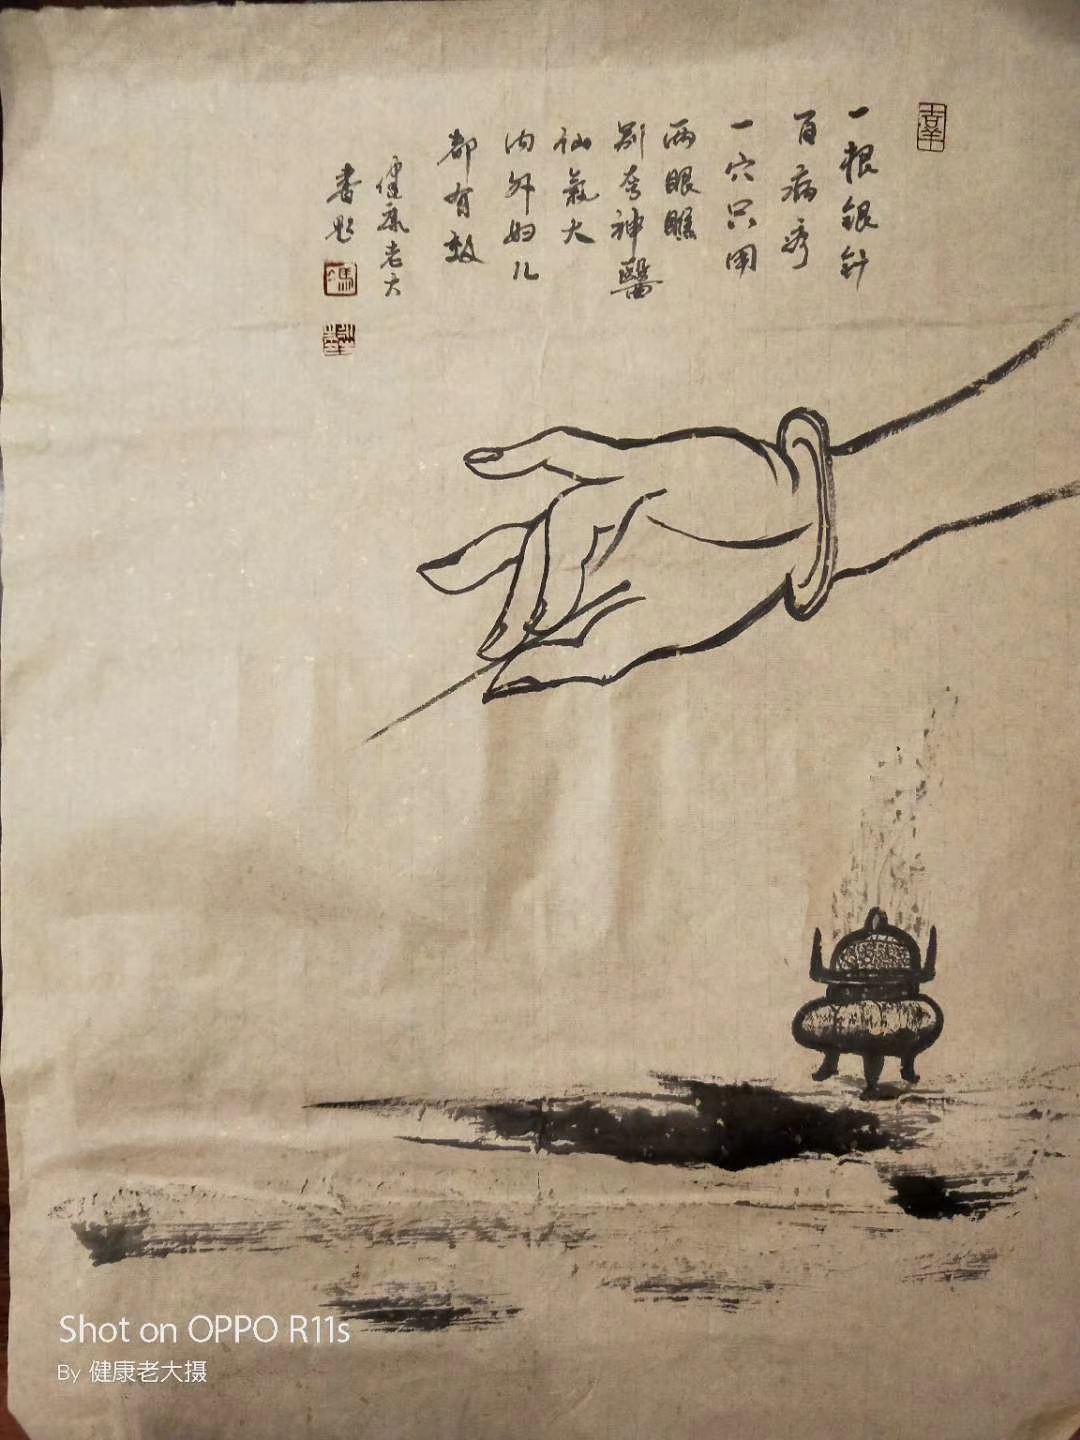 一根银针
百病疗
一穴只用
两眼瞧
别夸神醫
仙氣大
内外妇儿
都有效
健康老大
書
馮
Shot on OPPO R11s
By 健康老大摄